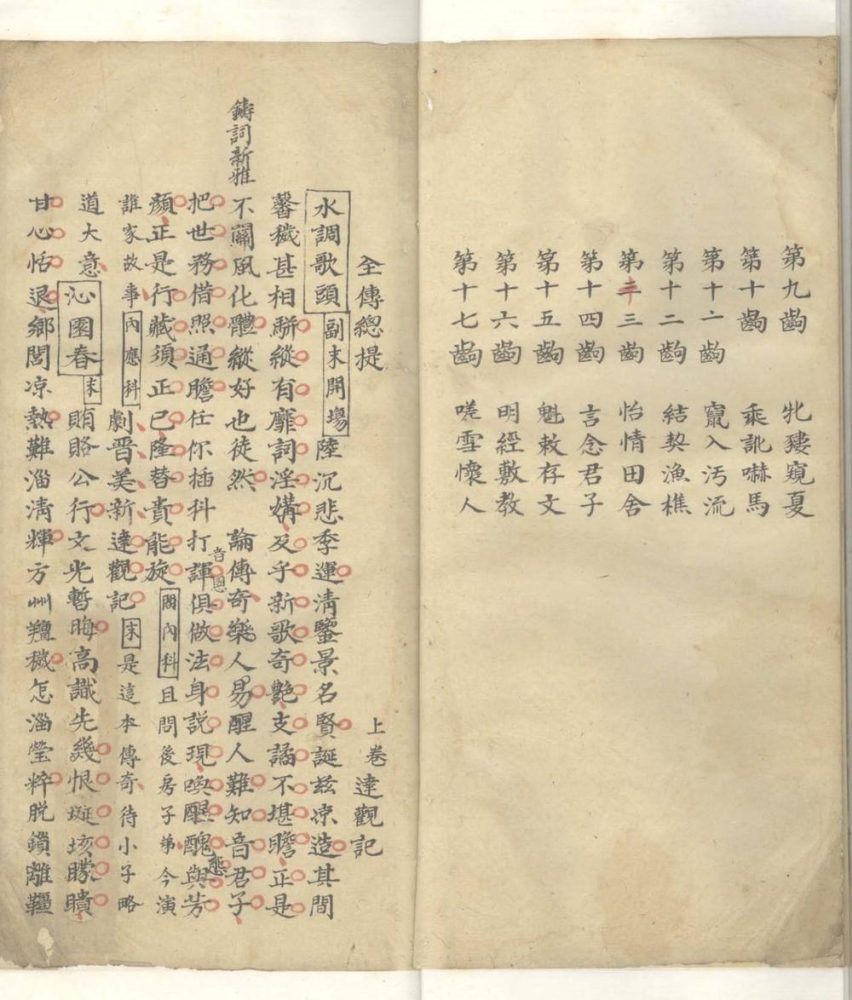 第九齣　牝豭窺夏
第十齣　乘訛嚇馬
第十一齣　竄入污流
第十二齣　結契漁樵
第十三齣　怡情田舍
第十四齣　言念君子
第十五齣　魁敕存文
第十六齣　明經敷教
第十七齣　嗟雪懷人
全傳總提　上卷達觀記
水調歌頭 副末開場 陸沉悲季運清鑒景名賢誕茲凉造其間
馨穢甚相駢縱有靡詞淫媾反乎新歌奇艷支譎不堪瞻正是
鑄詞新雅
不關風化體縱好也徒然　論傳奇樂人易醒人難知音君子
把世務借照通膽任你插科打諢俱做法身説現喚醒醜與芳
顏正是行藏須正己隆替責能旋 問內科 且問後房子弟今演
誰家故事 內應科 劇晉美新達觀記 末 是這本傳奇待小子略
道大意 沁園春 末 賄賂公行文光暫晦高識先幾恨埏垓矇瞶
甘心恬退鄉閭凉熱難淄清輝方州羶穢怎淄瑩粹脫鎖離韁